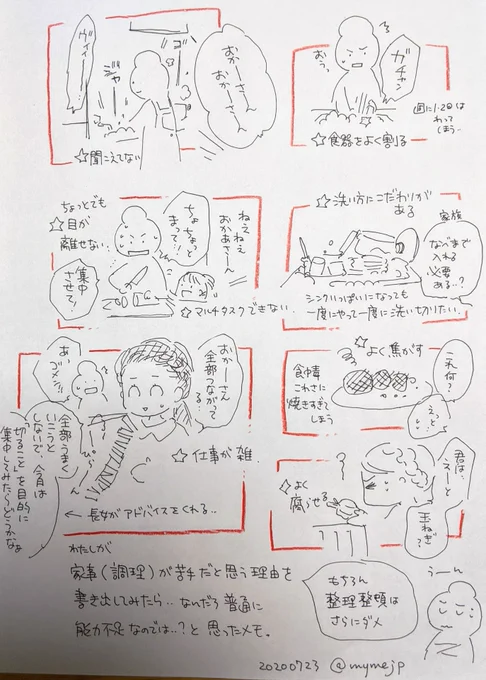 ガチャン
おうっ
週に1・2回は
わって
しまう…
☆食器をよく割る
おかーさーん
おかーさーん
ゴー
ジャー
☆聞こえてない
☆洗い方にこだわりが
ある
家族
なべまで
入れる
必要
ある…?
シンクいっぱいになっても
一度にやって一度に洗い切りたい。
ちょっとでも
☆目が
離せない…
ねぇねぇ
おかあさーん
ちょっと
まって!!
集中
させて!
☆マルチタスクできない。
☆よく焦がす
これ何?
えっと…
食中毒
こわさに
焼きすぎて
しまう
おかーさん
全部つながって
る…
あ、
ゴメン!!
☆仕事が雑。
全部うまく
いこうと
しないで、今月は
「切ること」を目的に
集中してみたらどうかなぁ
← 長女がアドバイスをくれる…
☆よく
腐らせる
君は…
玉ねぎ?
わたしが
家事(調理)が苦手だと思う理由を
書き出してみたら‥なんだろ普通に
能力不足なのでは‥?と思ったメモ。
もちろん
整理整頓は
さらにダメ
うーん
20200723 @mymejp